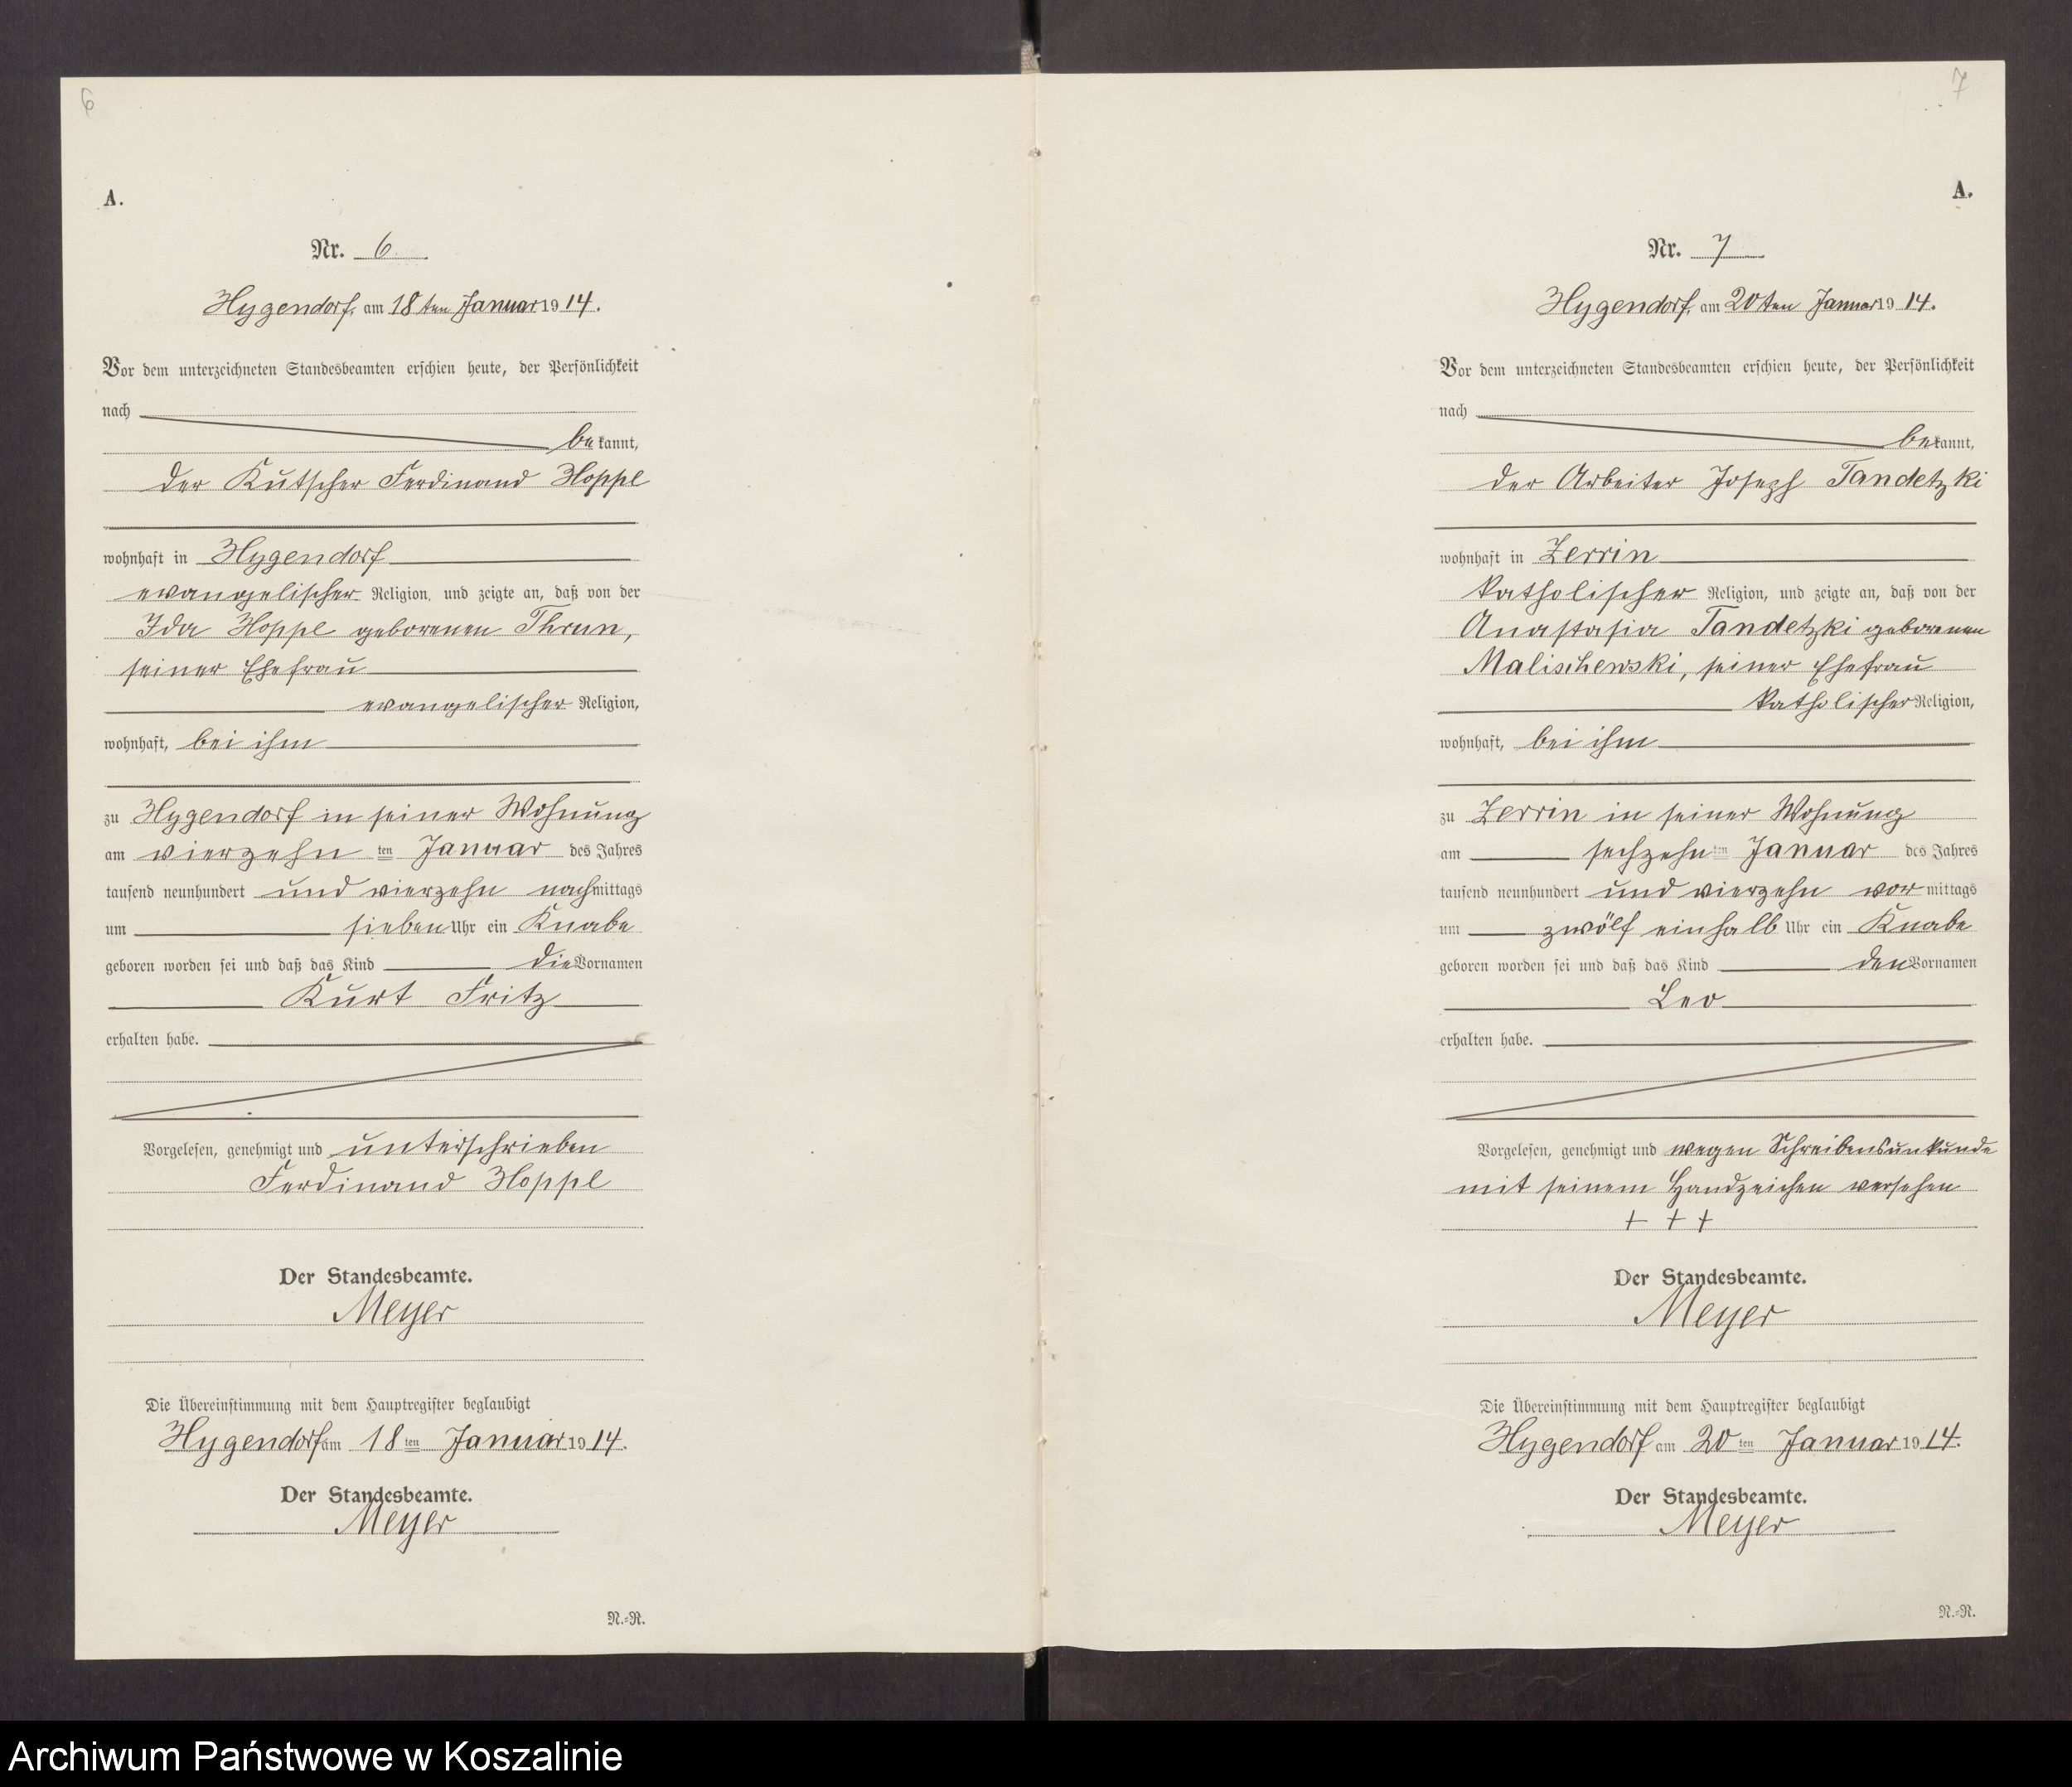 6
A.
Nr. 6
Hygendorf, am 18ten Januar 1914.
Vor dem unterzeichneten Standesbeamten erschien heute, der Persönlichkeit
nach
bekannt,
der Kutscher Ferdinand Hoppe
wohnhaft in Hygendorf
evangelischer Religion, und zeigte an, daß von der
Ida Hoppe geborenen Thrun,
seiner Ehefrau
evangelischer Religion,
wohnhaft, bei ihm
zu Hygendorf in seiner Wohnung
am vierzehn ten Januar des Jahres
tausend neunhundert und vierzehn nachmittags
um sieben Uhr ein Knabe
geboren worden sei und daß das Kind die Vornamen
Kurt Fritz
erhalten habe.
Vorgelesen, genehmigt und unterschrieben
Ferdinand Hoppe
Der Standesbeamte.
Meyer
Die Übereinstimmung mit dem Hauptregister beglaubigt
Hygendorf am 18 ten Januar 1914.
Der Standesbeamte.
Meyer
N.-R.
7
A.
Nr. 7
Hygendorf, am 20ten Januar 1914.
Vor dem unterzeichneten Standesbeamten erschien heute, der Persönlichkeit
nach
bekannt,
der Arbeiter Joseph Tandetzki
wohnhaft in Zerrin
katholischer Religion, und zeigte an, daß von der
Anastasia Tandetzki geborenen
Malischewski, seiner Ehefrau
katholischer Religion,
wohnhaft, bei ihm
zu Zerrin in seiner Wohnung
am sechzehn ten Januar des Jahres
tausend neunhundert und vierzehn vormittags
um zwölf einhalb Uhr ein Knabe
geboren worden sei und daß das Kind den Vornamen
Leo
erhalten habe.
Vorgelesen, genehmigt und wegen Schreibensunkunde
mit seinem Handzeichen versehen
+ + +
Der Standesbeamte.
Meyer
Die Übereinstimmung mit dem Hauptregister beglaubigt
Hygendorf am 20 ten Januar 1914.
Der Standesbeamte.
Meyer
N.-R.
Archiwum Państwowe w Koszalinie